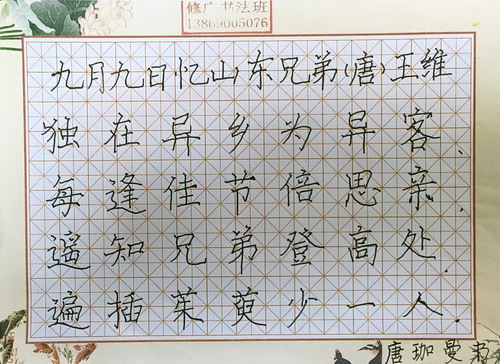 修广书法班
13869005076
九月九日忆山东兄弟(唐)王维
独在异乡为异客、
每逢佳节倍思亲.
遥知兄弟登高处.
遍插茱萸少一人.
唐珈曼书